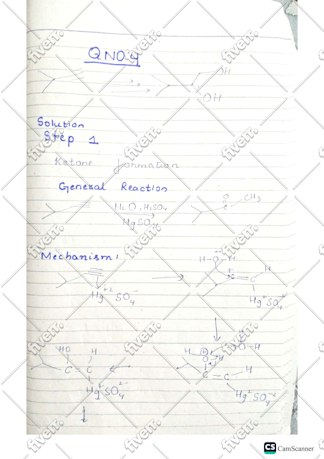 QNO.4
OH
OH
Solution
Step 1
Ketone formation
General Reaction
H₂O, H₂SO₄
HgSO₄
O
CH₃
Mechanism:
H-O-H
H
Hg⁺²SO₄
Hg⁺SO₄
HO H
C = C
Hg⁺SO₄
H
O-H
H
C = C
Hg⁺SO₄
fiverr.
CS CamScanner